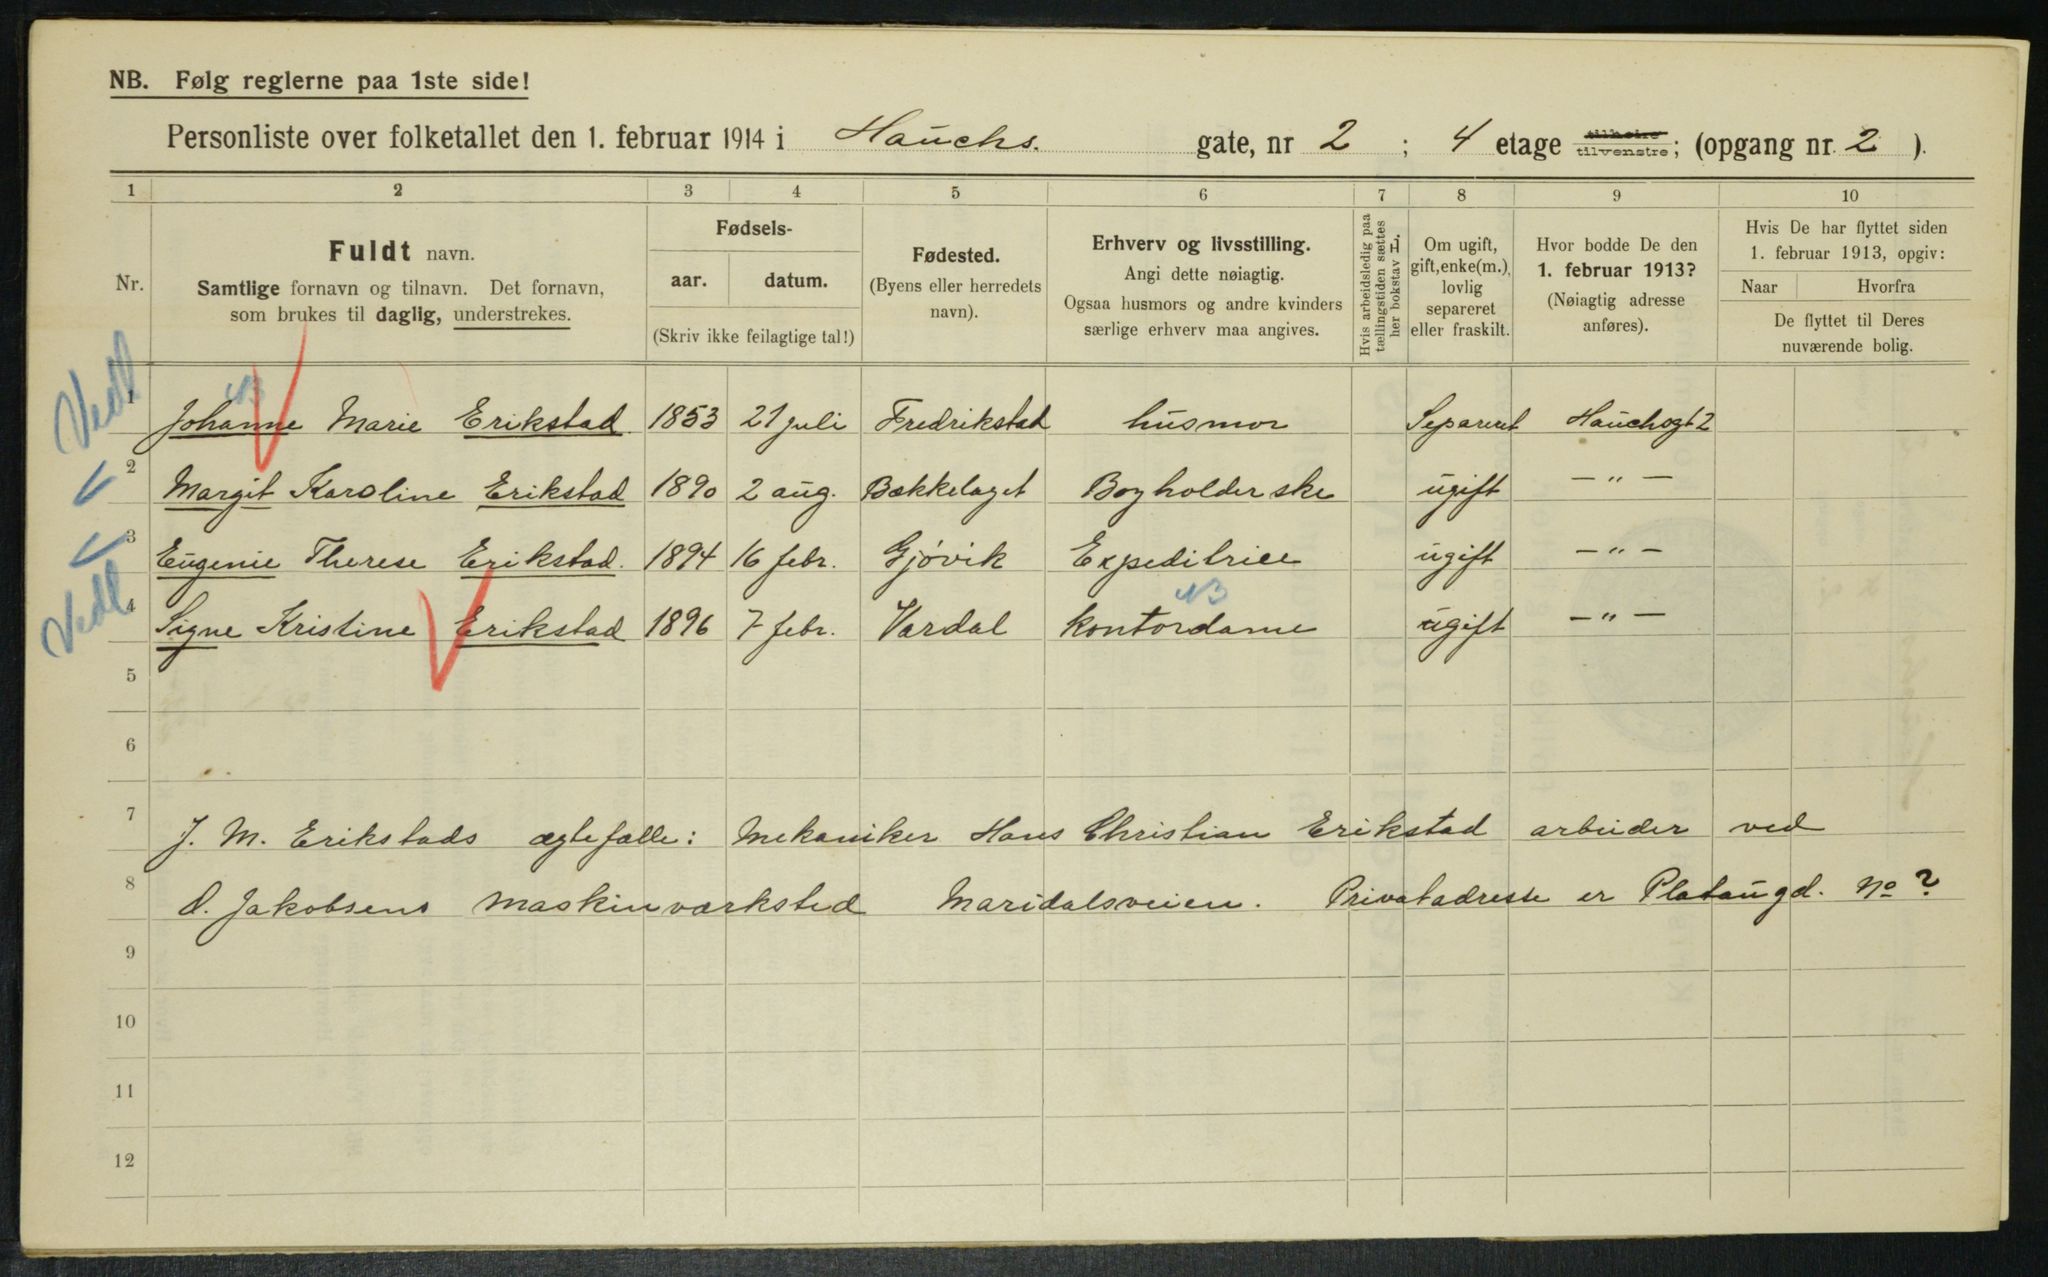 NB. Følg reglerne paa 1ste side!
Personliste over folketallet den 1. februar 1914 i Hauchs. gate, nr 2 ; 4 etage tilhøire tilvenstre; (opgang nr. 2 ).
1 2 3 4 5 6 7 8 9 10
Nr.
Fuldt navn.
Samtlige fornavn og tilnavn. Det fornavn,
som brukes til daglig, understrekes.
Fødsels-
aar. datum.
(Skriv ikke feilagtige tal!)
Fødested.
(Byens eller herredets
navn).
Erhverv og livsstilling.
Angi dette nøiagtig.
Ogsaa husmors og andre kvinders
særlige erhverv maa angives.
Hvis arbeidsledig paa
tællingstiden sættes
her bokstav L.
Om ugift,
gift, enke(m.),
lovlig
separeret
eller fraskilt.
Hvor bodde De den
1. februar 1913?
(Nøiagtig adresse
anføres).
Hvis De har flyttet siden
1. februar 1913, opgiv:
Naar Hvorfra
De flyttet til Deres
nuværende bolig.
Vedl NB
1 Johanne Marie Erikstad 1853 21 juli Fredrikstad husmor Separeret Hauchsgt 2
2 Margit Karoline Erikstad 1890 2 aug. Bækkelaget Bogholderske ugift — " —
3 Eugenie Therese Erikstad. 1894 16 febr. Gjövik Expeditrice ugift — " —
Vedl NB
4 Signe Kristine Erikstad 1896 7 febr. Vardal kontordame ugift — " —
5
6
7 J. M. Erikstads ægtefælle: Mekaniker Hans Christian Erikstad arbeider ved
8 O. Jakobsens Maskinværksted Maridalsveien. Privatadresse er Plataugd. No ?
9
10
11
12